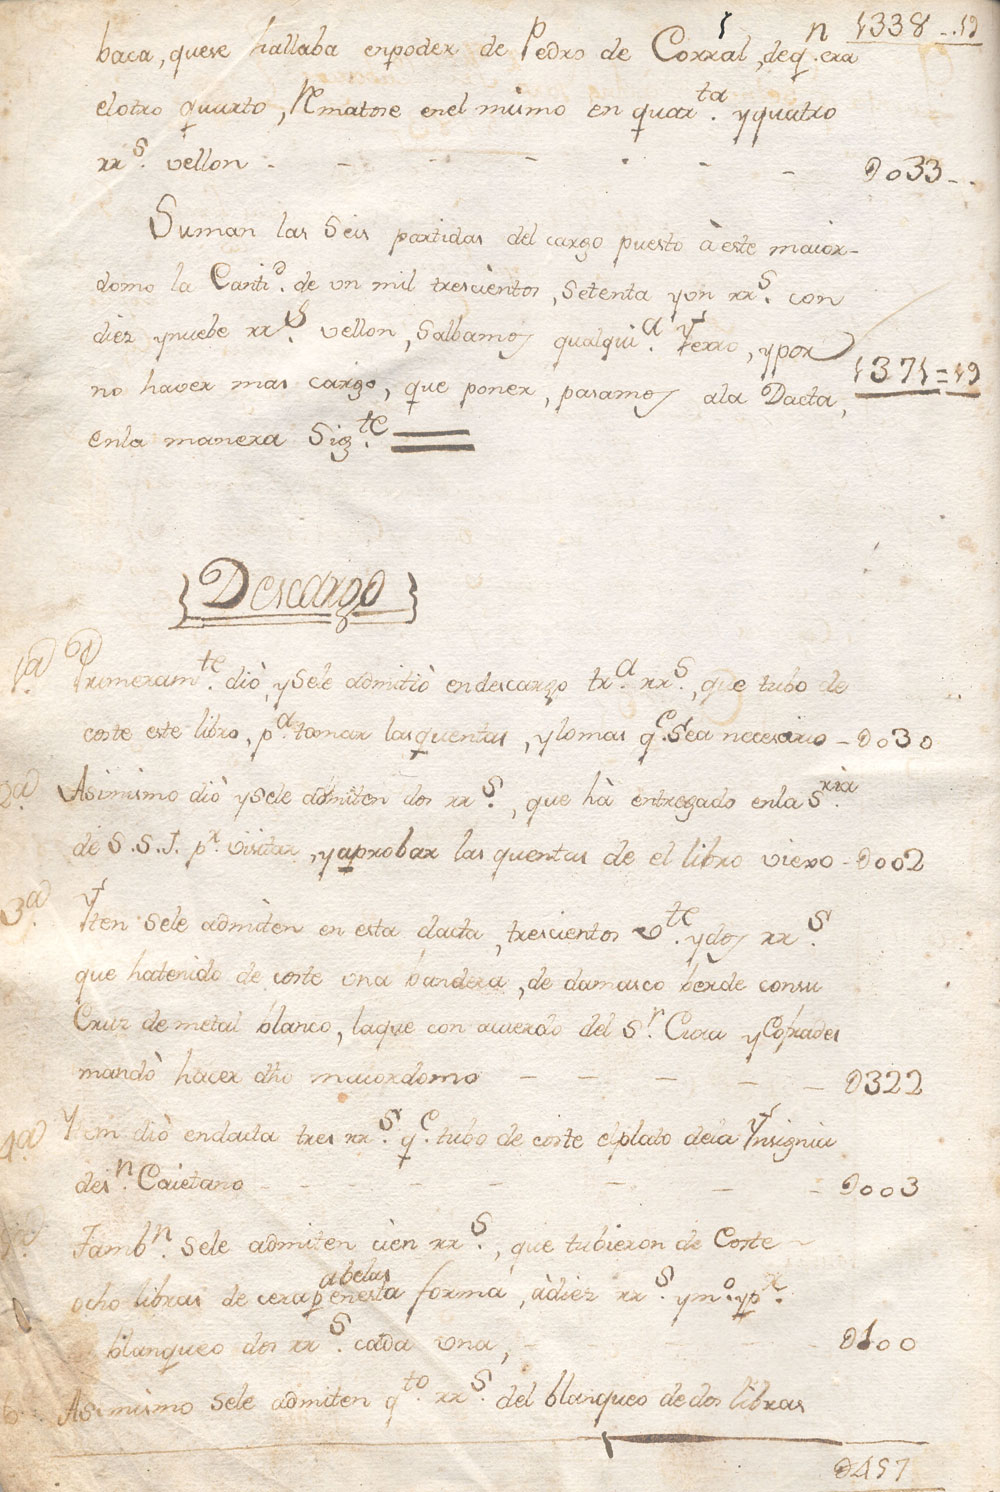 1338..19
baca, quese hallaba enpoder de Pedro de Corral, deqn. era
elotro quarto, Rematose enel mismo en quarta. yquatro
rrs. vellon - - - - - - - - 0033-..
Suman las Seis partidas del cargo puesto à este maior-
domo la Cantid. de un mil trescientos, setenta yun rrs. con
diez ynuebe rrs vellon, Salbamos qualquia. Yerro, ypor
no haver mas cargo, que poner, pasamos ala Dacta, 1371=19
enla manera Sigte. ═══
{Descargo}
1a. Primeramte. diò, ysele admitiò endescargo tra. rrs., que tubo de
coste este libro, pa. tomar lasquentas, ylomas qe. Sea necesario - 0030
2a. Asimismo diò ysele admiten dos rrs., que hà entregado enla Sria
de S.S.I. pr. visitar, yaprobar las quentas de el libro viexo - 0002
3a. Yten sele admiten en esta dacta, trescientos vte. ydos rrs.
que hatenido de coste una bandera, de damasco berde consu
Cruz de metal blanco, laque con acuerdo del Sr. Cura y Cofrades
mandò hacer dho maiordomo - - - - - 0322
4a. Ytem diò endacta tres rrs. qe. tubo de coste elplato dela Ynsignia
deSn. Caietano - - - - - - - - 0003
Tambn. sele admiten cien rrs., que tubieron de Coste
ocho libras de cera abelas p enesta forma, àdiez rrs. ymo. ypr.
blanqueo dos rrs. cada una, - - - - 0100
6a. Asimismo sele admiten qto rrs. del blanqueo de dos libras
0457